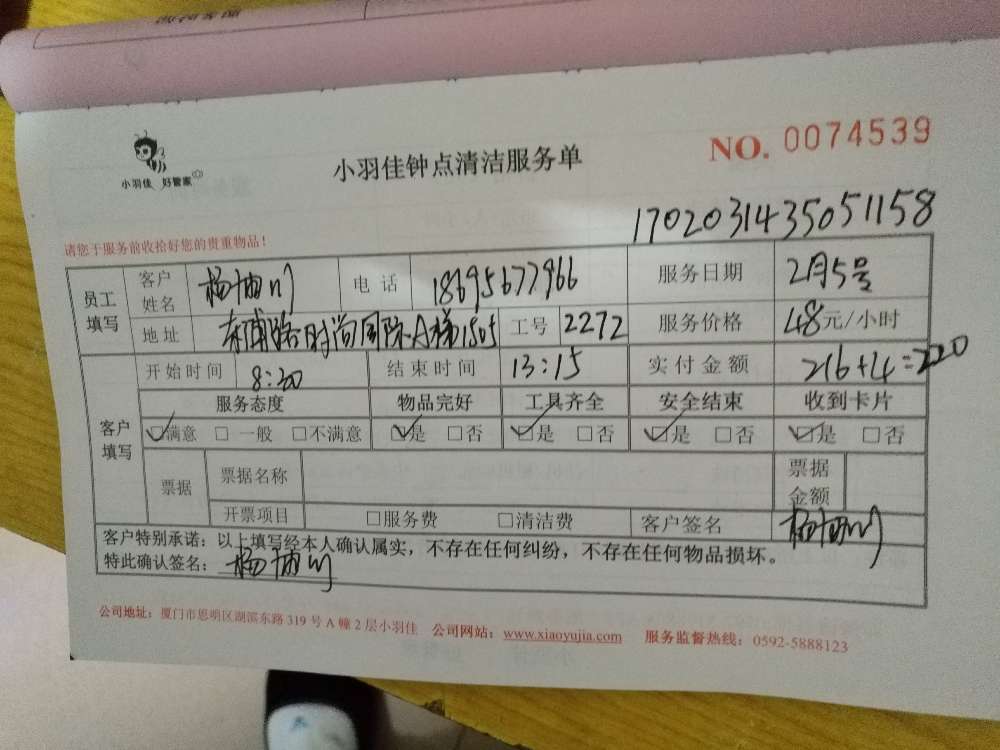 小羽佳 好管家
小羽佳钟点清洁服务单
NO. 0074539
1702031435051158
请您于服务前收拾好您的贵重物品！
员工填写 客户姓名 杨 电话 18695677966 服务日期 2月5号
地址 东浦路时尚国际A梯1505 工号 2272 服务价格 48元/小时
开始时间 8:30 结束时间 13:15 实付金额 216+4=220
客户填写 服务态度 物品完好 工具齐全 安全结束 收到卡片
☑满意 □一般 □不满意 ☑是 □否 ☑是 □否 ☑是 □否 ☑是 □否
票据 票据名称 票据金额
开票项目 □服务费 □清洁费 客户签名 杨
客户特别承诺：以上填写经本人确认属实，不存在任何纠纷，不存在任何物品损坏。
特此确认签名：杨
公司地址：厦门市思明区湖滨东路319号A幢2层小羽佳 公司网站：www.xiaoyujia.com 服务监督热线：0592-5888123